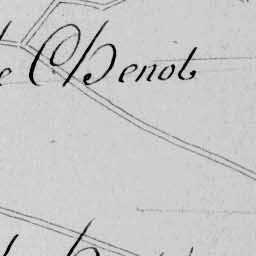 e Chenot